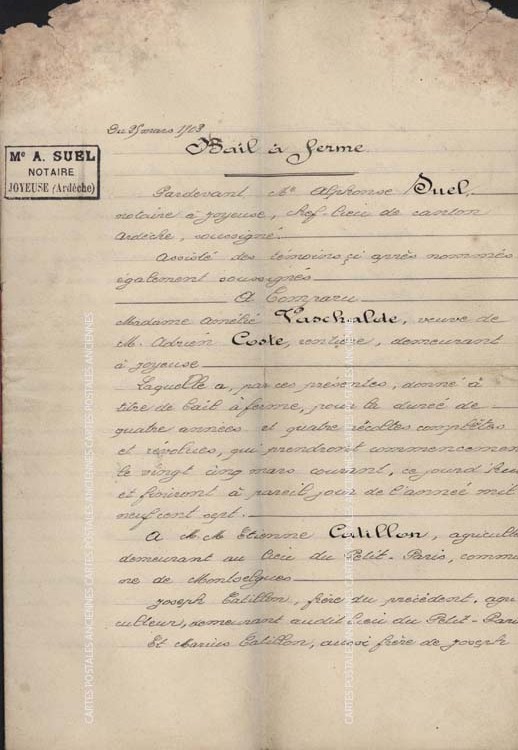 Du 25 mars 1903
Bail à ferme
Mᵉ A. SUEL
NOTAIRE
JOYEUSE (Ardèche)
Pardevant Mᵉ Alphonse Suel,
notaire à Joyeuse, chef-lieu de canton
Ardèche, soussigné
Assisté des témoins ci après nommés
également soussignés
A Comparu
Madame Amélie Vaschalde, veuve de
M. Adrien Coste, rentière, demeurant
à Joyeuse
Laquelle a, par ces présentes, donné à
titre de bail à ferme, pour la durée de
quatre années et quatre récoltes complètes
et révolues, qui prendront commencemen
le vingt cinq mars courant, ce jourd'hui
et finiront à pareil jour de l'année mil
neuf cent sept.
A M. M. Etienne Catillon, agricult
demeurant au lieu du Petit-Paris, commu
ne de Montselgues
Joseph Catillon, frère du précédent, agri
culteur, demeurant audit lieu du Petit-Paris
Et Marius Catillon, aussi frère de Joseph
CARTES POSTALES ANCIENNES CARTES POSTALES ANCIENNES CARTES POSTALES ANCIENNES
CARTES POSTALES ANCIENNES CARTES POSTALES ANCIENNES CARTES POSTALES ANCIENNES